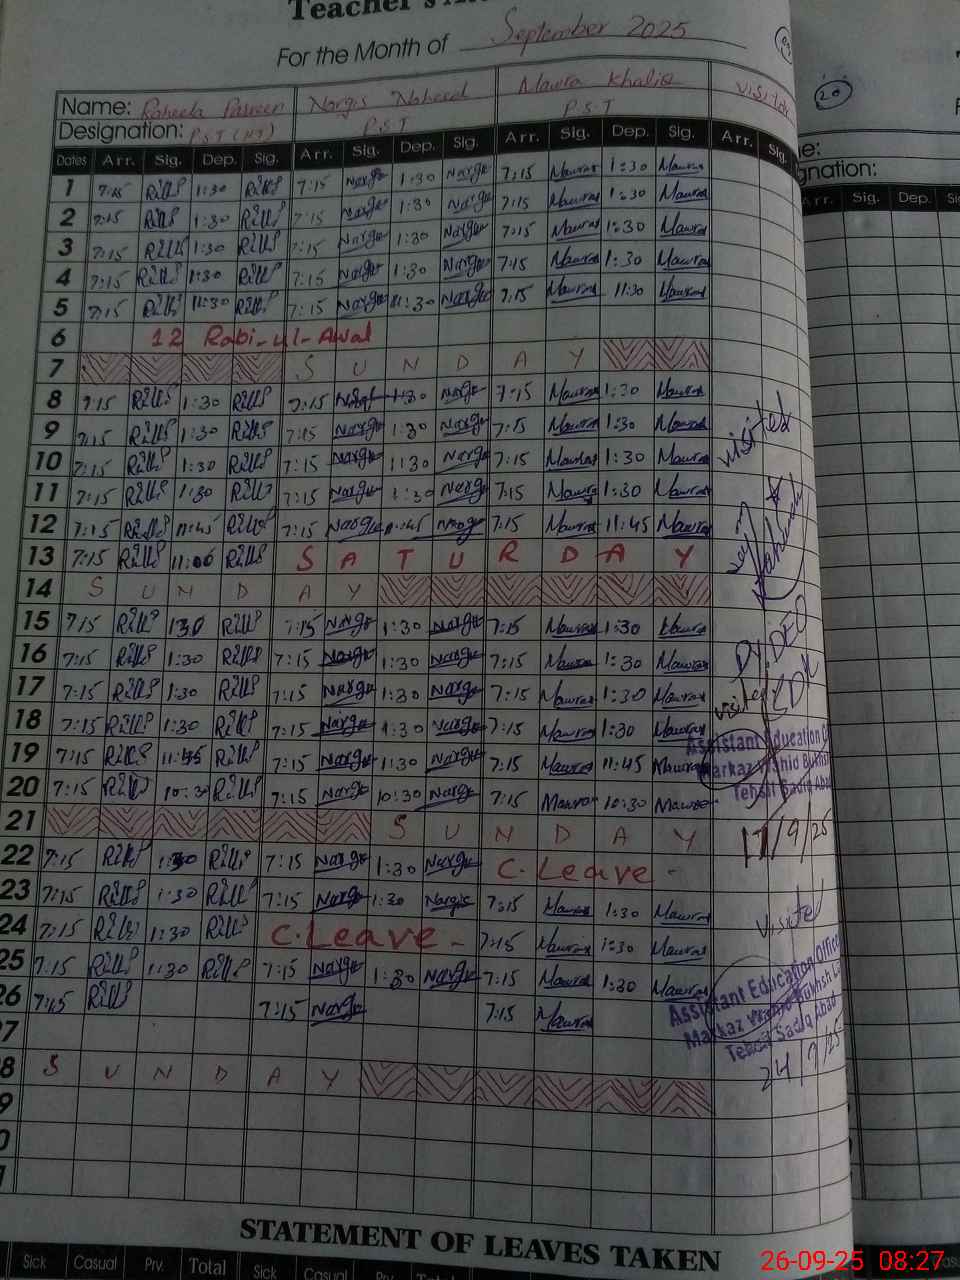 Teacher's
For the Month of September 2025
Name: Raheela Parveen Nargis Naheed Mawra Khaliq Visitor
Designation: P.S.T (HT) P.S.T P.S.T
Dates Arr. Sig. Dep. Sig. Arr. Sig. Dep. Sig. Arr. Sig. Dep. Sig. Arr. Sig.
1 7:15 1:30 7:15 Nargis 1:30 Nargis 7:15 Mawra 1:30 Mawra
2 7:15 1:30 7:15 Nargis 1:30 Nargis 7:15 Mawra 1:30 Mawra
3 7:15 1:30 7:15 Nargis 1:30 Nargis 7:15 Mawra 1:30 Mawra
4 7:15 1:30 7:15 Nargis 1:30 Nargis 7:15 Mawra 1:30 Mawra
5 7:15 11:30 7:15 Nargis 11:30 Nargis 7:15 Mawra 11:30 Mawra
6 12 Rabi-ul-Awal
7 S U N D A Y
8 7:15 1:30 7:15 Nargis 1:30 Nargis 7:15 Mawra 1:30 Mawra
9 7:15 1:30 7:15 Nargis 1:30 Nargis 7:15 Mawra 1:30 Mawra
10 7:15 1:30 7:15 Nargis 1:30 Nargis 7:15 Mawra 1:30 Mawra
11 7:15 1:30 7:15 Nargis 1:30 Nargis 7:15 Mawra 1:30 Mawra
12 7:15 11:45 7:15 Nargis 11:45 Nargis 7:15 Mawra 11:45 Mawra
13 7:15 11:00 S A T U R D A Y
14 S U N D A Y
15 7:15 1:30 7:15 Nargis 1:30 Nargis 7:15 Mawra 1:30 Mawra
16 7:15 1:30 7:15 Nargis 1:30 Nargis 7:15 Mawra 1:30 Mawra
17 7:15 1:30 7:15 Nargis 1:30 Nargis 7:15 Mawra 1:30 Mawra
18 7:15 1:30 7:15 Nargis 1:30 Nargis 7:15 Mawra 1:30 Mawra
19 7:15 11:45 7:15 Nargis 11:30 Nargis 7:15 Mawra 11:45 Mawra
20 7:15 10:30 7:15 Nargis 10:30 Nargis 7:15 Mawra 10:30 Mawra
21 S U N D A Y
22 7:15 1:30 7:15 Nargis 1:30 Nargis C. Leave -
23 7:15 1:30 7:15 Nargis 1:30 Nargis 7:15 Mawra 1:30 Mawra
24 7:15 1:30 C. Leave - 7:15 Mawra 1:30 Mawra
25 7:15 1:30 7:15 Nargis 1:30 Nargis 7:15 Mawra 1:30 Mawra
26 7:15 7:15 Nargis 7:15 Mawra
7
8 S U N D A Y
9
0
1
visited
Dy. DEO
visited
Assistant Education
Markaz Wahid Bukhsh
Tehsil Sadiq Abad
17/9/25
Visited
Assistant Education Office
Markaz Wahid Bukhsh
Tehsil Sadiq Abad
24/9/25
STATEMENT OF LEAVES TAKEN
Sick Casual Prv. Total Sick Casual Prv.
20
e:
gnation:
Arr. Sig. Dep.
26-09-25 08:27